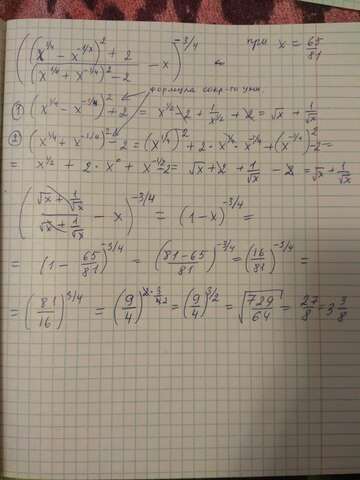 (((x^1/4 - x^-1/4)^2 + 2) / ((x^1/4 + x^-1/4)^2 - 2) - x)^-3/4 при x = 65/81
формула сокр-го умн
① (x^1/4 - x^-1/4)^2 + 2 = x^1/2 - 2 + 1/x^1/2 + 2 = √x + 1/√x
② (x^1/4 + x^-1/4)^2 - 2 = (x^1/4)^2 + 2 · x^1/4 · x^-1/4 + (x^-1/4)^2 - 2 =
= x^1/2 + 2 · x^0 + x^-1/2 - 2 = √x + 2 + 1/√x - 2 = √x + 1/√x
((√x + 1/√x) / (√x + 1/√x) - x)^-3/4 = (1 - x)^-3/4 =
= (1 - 65/81)^-3/4 = ((81 - 65)/81)^-3/4 = (16/81)^-3/4 =
= (81/16)^3/4 = (9/4)^2·3/42 = (9/4)^3/2 = √729/64 = 27/8 = 3 3/8